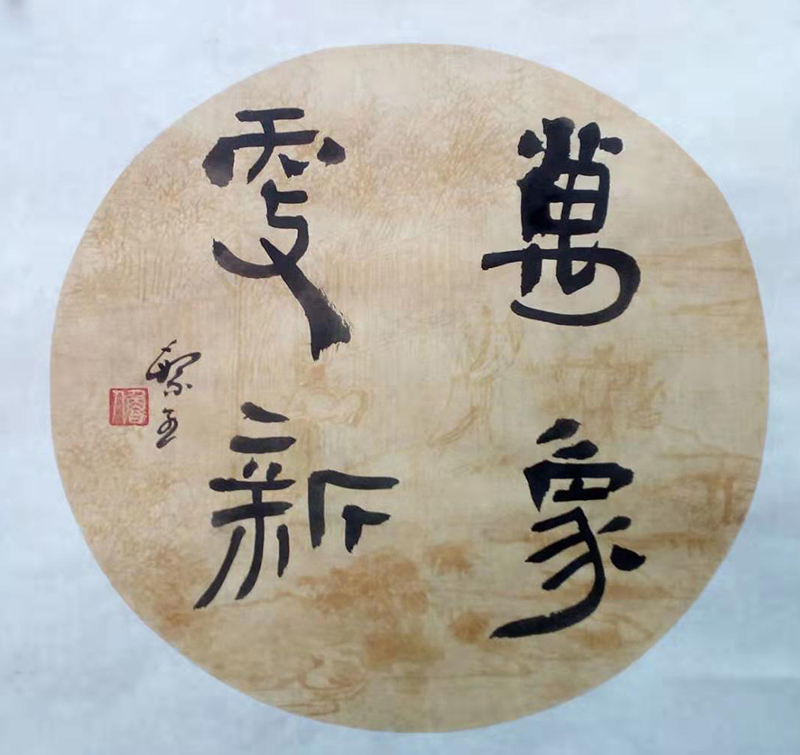 萬象
更新